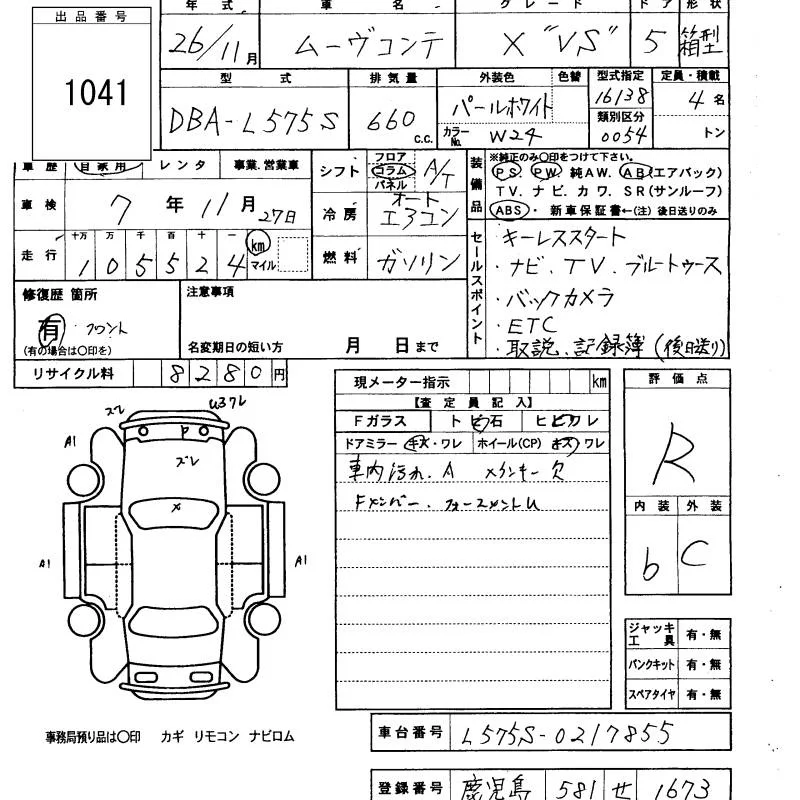 出品番号
1041
年式 車名 グレード ドア 形状
26/11月 ムーヴコンテ X "VS" 5 箱型
型式 排気量 外装色 色替 型式指定 定員・積載
DBA-L575S 660 C.C. パールホワイト 16138 4名
カラーNo. W24 類別区分 0054 トン
車歴 自家用 レンタ 事業.営業車
シフト フロア コラム パネル A/T
装備品 ※純正のみ○印をつけて下さい。
PS. PW. 純AW. AB(エアバック)
TV. ナビ. カワ. SR(サンルーフ)
ABS ・ 新車保証書←(注) 後日送りのみ
車検 7年11月27日
冷房 オートエアコン
走行 十万 万 千 百 十 一
105524 km マイル
燃料 ガソリン
セールスポイント
キーレススタート
・ナビ.TV.ブルートゥース
・バックカメラ
・ETC
・取説、記録簿(後日送り)
修復歴 箇所
有 フロント
(有の場合は○印を)
注意事項
名変期日の短い方 月 日まで
リサイクル料 8280円
現メーター指示 km
【査定員記入】
Fガラス トビ石 ヒビワレ
ドアミラー キズ・ワレ ホイール(CP) キズ ワレ
車内汚れ. A メインキー欠
Fメンバー. フォースメントU
評価点
R
内装 外装
b C
ズレ U3ワレ
A1 P ズレ
X
A1 A1
ジャッキ工具 有・無
パンクキット 有・無
スペアタイヤ 有・無
事務局預り品は○印 カギ リモコン ナビロム
車台番号 L575S-0217855
登録番号 鹿児島 581 せ 1673